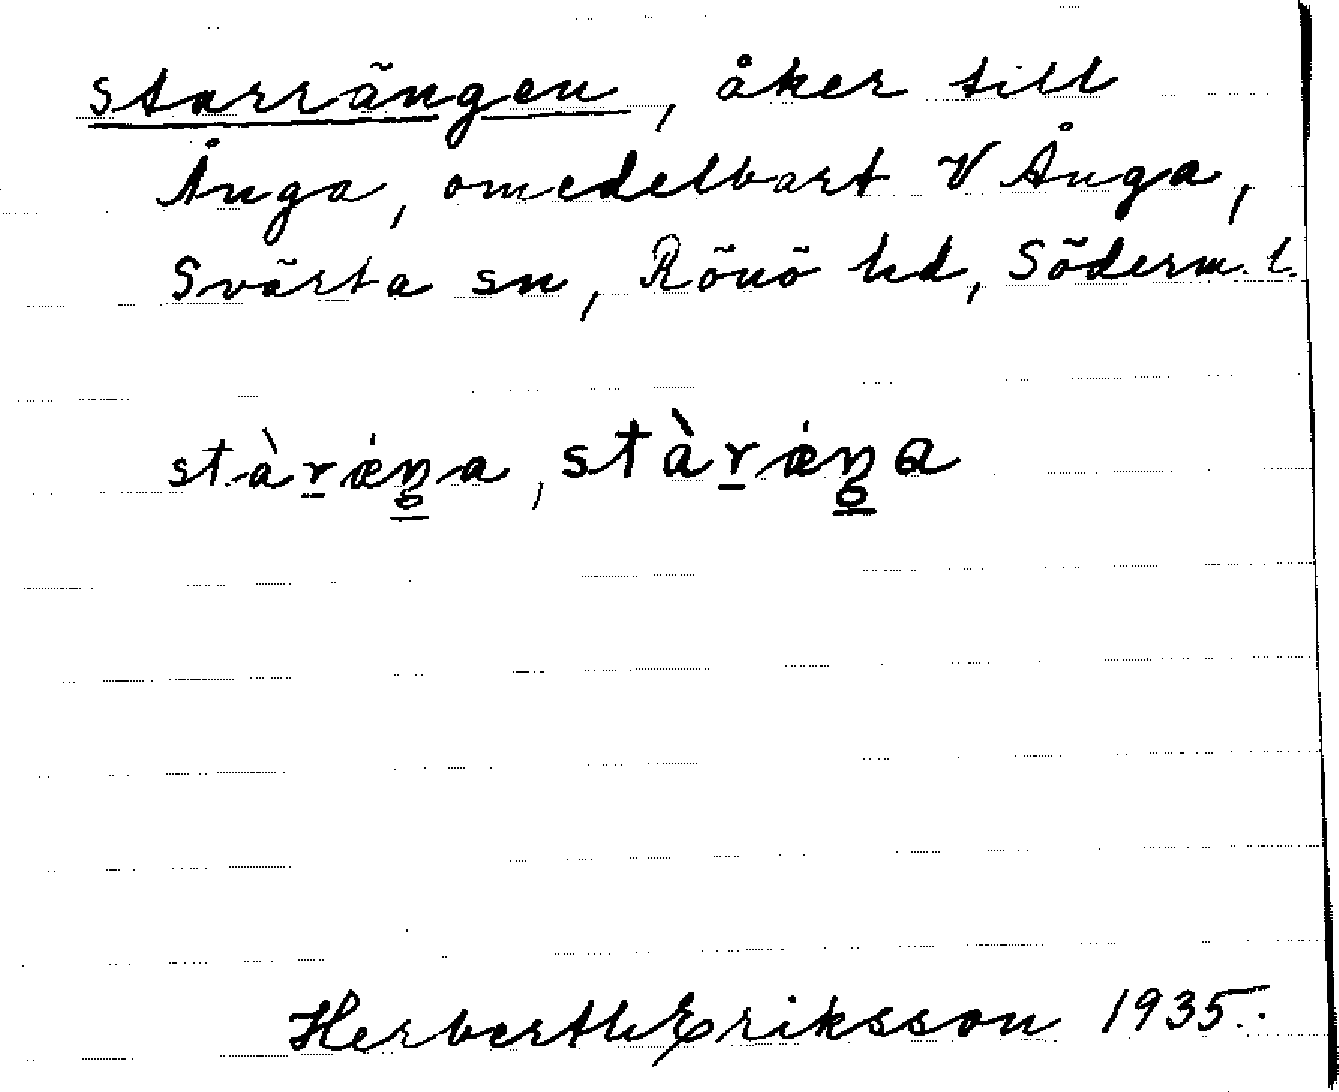 starrängen, åker till
Ånga, omedelbart V Ånga,
Svärta sn, Rönö hd, Söderm. l.
stàr̠æ̇ŋ̠a, stàr̠æ̇ŋ̠a
Herberth Eriksson 1935.